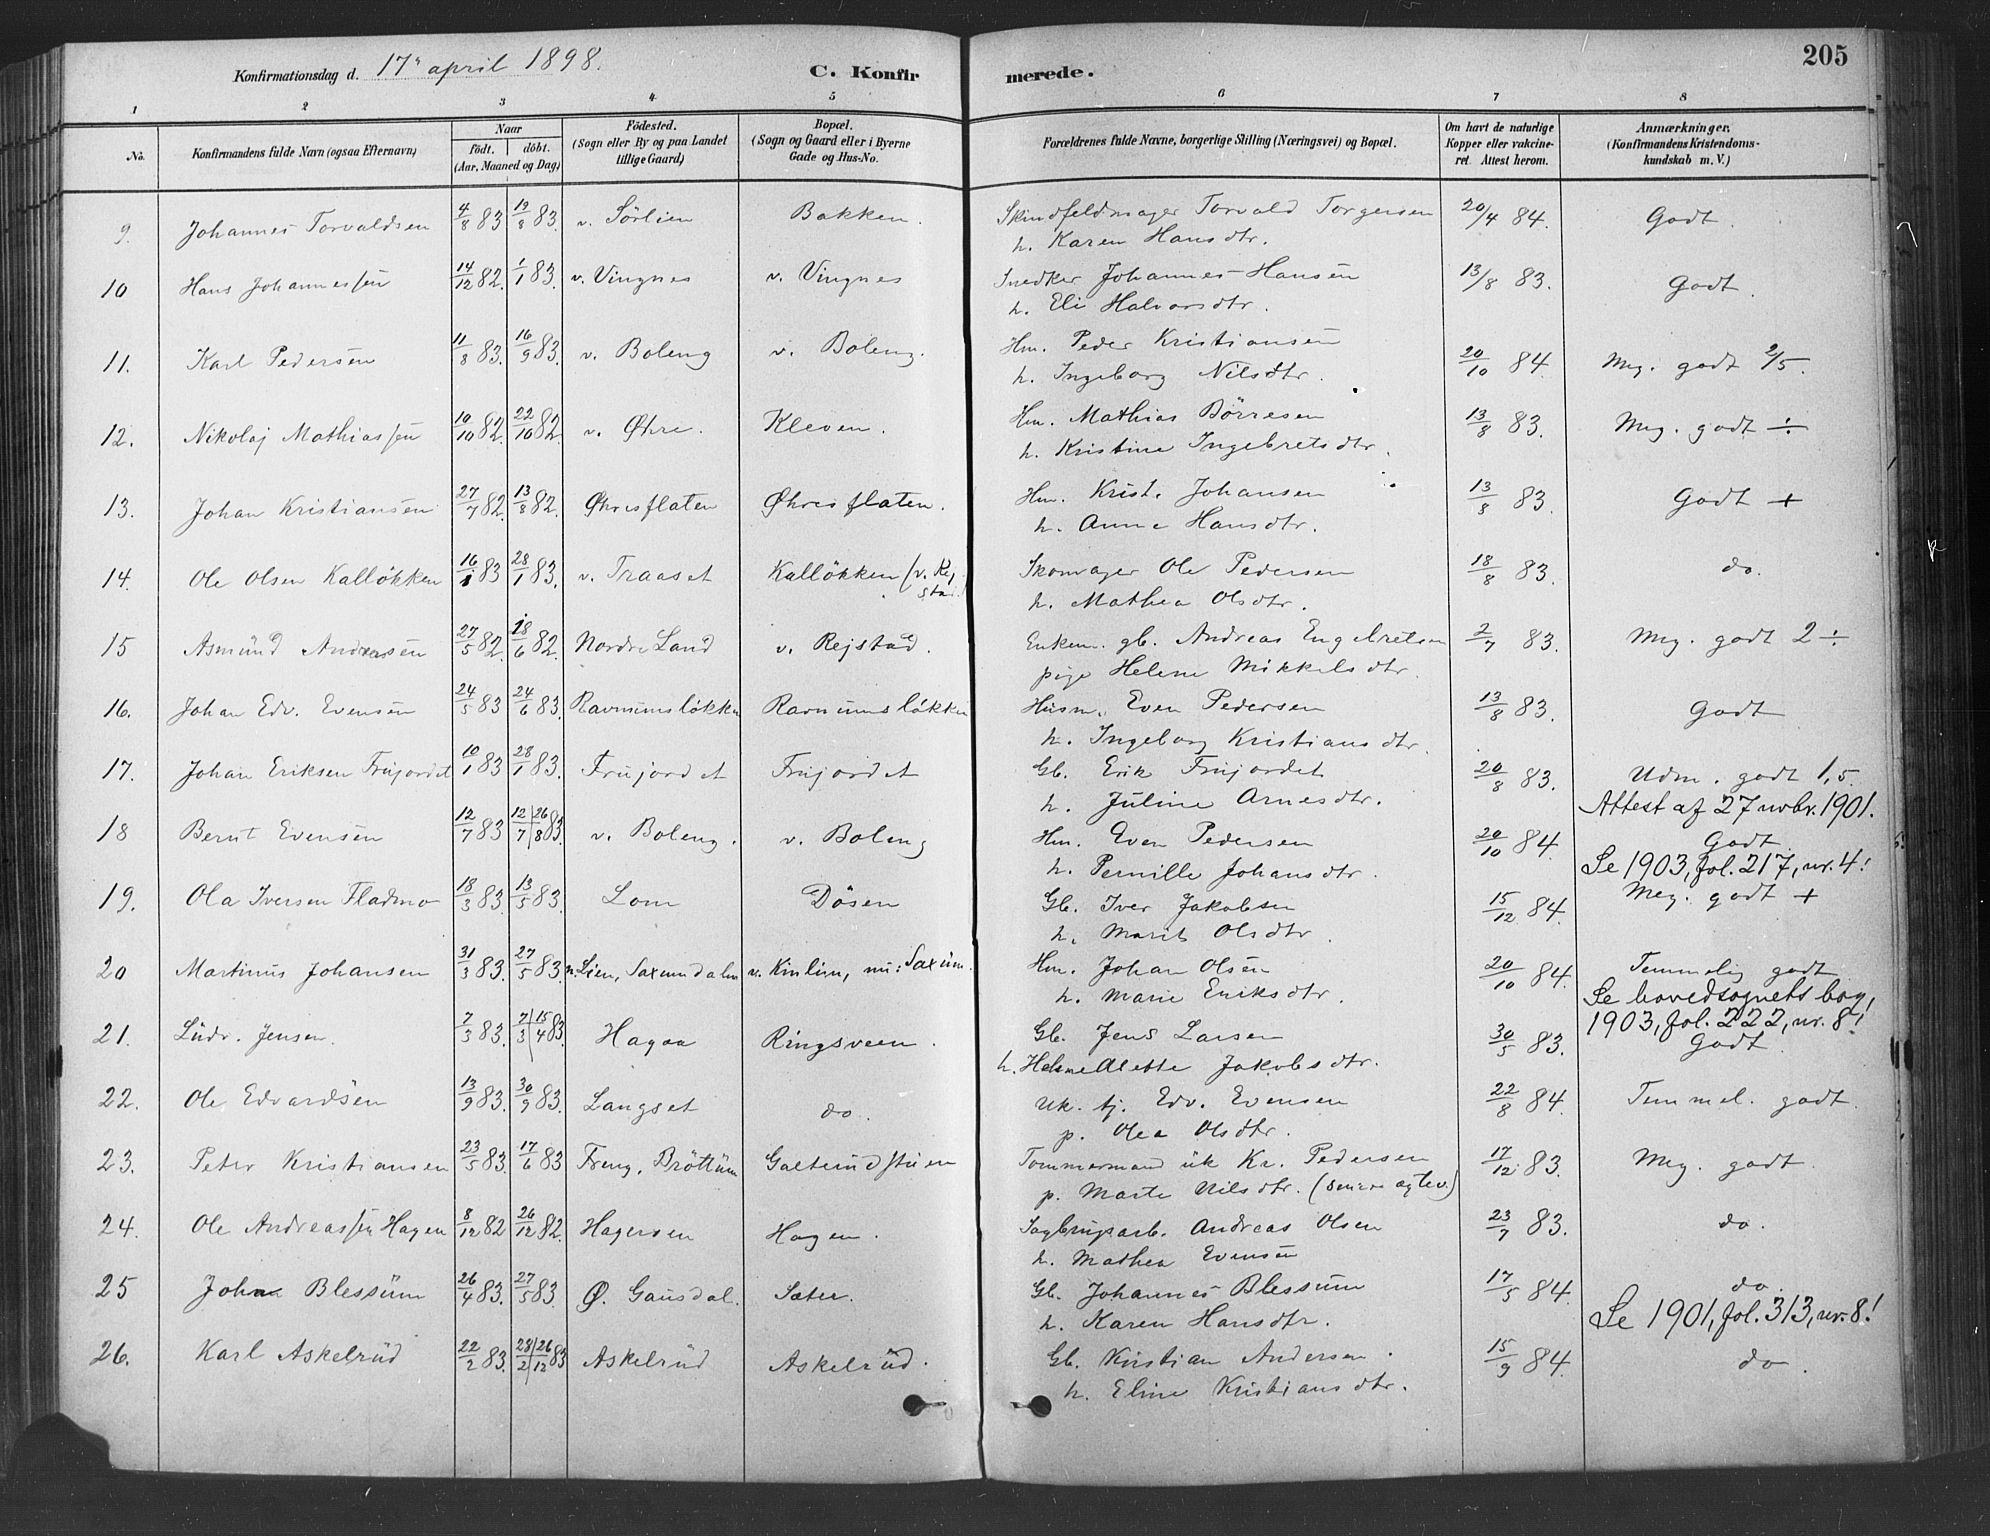 205
Konfirmationsdag d. 17' april 1898. C. Konfirmerede.
1 2 3 4 5 6 7 8
No. Konfirmandens fulde Navn (ogsaa Efternavn) Naar Födt. döbt. (Aar, Maaned og Dag) Födested. (Sogn eller By og paa Landet tillige Gaard) Bopæl. (Sogn og Gaard eller i Byerne Gade og Hus-No. Forældrenes fulde Navne, borgerlige Stilling (Næringsvei) og Bopæl. Om havt de naturlige Kopper eller vakcineret. Attest herom. Anmærkninger. (Konfirmandens Kristendomskundskab m. V.)
9. Johannes Torvaldsen 4/8 83 19/8 83. v. Sörlien Bakken. Skindfeldmager Torvald Torgersen 20/4 84. Godt.
h. Karen Hansdtr.
10 Hans Johannessen 14/12 82. 1/1 83. v. Vingnes v. Vingnes Snedker Johannes Hansen 13/8 83. Godt.
h. Eli Halvorsdtr.
11. Karl Pedersen 11/8 83. 16/9 83. v. Boleng v. Boleng. Hm. Peder Kristiansen 20/10 84. Meg. godt 2/5.
h. Ingeborg Nilsdtr.
12. Nikolaj Mathiassen 10/10 82. 22/10 82. v. Øhre. Kleven. Hm. Mathias Börresen 13/8 83. Meg. godt ÷
h. Kristine Ingebretsdtr.
13. Johan Kristiansen 27/7 82. 13/8 82. Øhresflaten Øhresflaten. Hm. Krist. Johansen 13/8 83. Godt +
h. Anne Hansdtr.
14. Ole Olsen Kallökken 16/1 83 28/1 83. v. Traaset Kallökken (v. Rejstad.) Skomager Ole Pedersen 18/8 83. do.
h. Mathea Olsdtr.
15 Asmund Andersen 27/5 82. 18/6 82. Nordre Land v. Rejstad. Enkem. gb. Andreas Engebretsen 2/7 83. Meg. godt 2 ÷
pige Helene Mikkelsdtr.
16. Johan Edv. Evensen 24/5 83 24/6 83. Ravnumslökken Ravnumslökken Husm. Even Pedersen 13/8 83. Godt
h. Ingeborg Kristiansdtr.
17. Johan Eriksen Frujordet 10/1 83 28/1 83. Frujordet Frujordet Gb. Erik Frujordet 20/8 83. Udm. godt 1,5
h. Juline Arnesdtr. Attest af 27 novbr. 1901.
18 Bernt Evensen 12/7 83 12/7 | 26/8 83. v. Boleng. v. Boleng Hm. Even Pedersen 20/10 84. Godt
h. Pernille Johansdtr. Se 1903, fol. 217, nr. 4!
19. Ola Iversen Fladmo 18/3 83. 13/5 83. Lom Dösen Gb. Iver Jakobsen 15/12 84. Meg. godt +
h. Marit Olsdtr.
20 Martinus Johansen 31/3 83. 27/5 83. n. Lien, Saxumdalen v. Kinlien, nu: Saxum. Hm. Johan Olsen 20/10 84. Temmelig godt
h. Marie Eriksdtr. Se hovedsognets bog,
21. Ludv. Jensen. 7/3 83. 7/3 | 15/4 83. Hagaa Ringsveen. Gb. Jens Larsen 30/5 83. 1903, fol. 222, nr. 8! Godt.
h. Helene Alette Jakobsdtr.
22. Ole Edvardsen 13/9 83. 30/9 83. Langset do. Uk. tj. Edv. Evensen 22/8 84. Temmel. godt.
p. Olea Olsdtr.
23. Peter Kristiansen 23/5 83. 17/6 83 Freng, Bröttum Galterudstuen Tommermand uk Kr. Pedersen 17/12. 83. Meg. godt.
p. Marte Nilsdtr. (senere agtev.)
24. Ole Andreassen Hagen 8/12 82 26/12 82. Hageseen Hagen. Sagbrugsarb. Andreas Olsen 23/7 83. do.
h. Mathea Evensen
25 Johan Blessum 26/4 83. 27/5 83. Ø. Gausdal. Sæter. Gb. Johannes Blessum 17/5 84. do.
h. Karen Hansdtr. Se 1901, fol. 313, nr. 8!
26. Karl Askelrud 22/2 83. 28/2 | 26/12 83 Askelrud Askelrud. Gb. Kristian Andersen. 15/9 84. do.
h. Eline Kristiansdtr.